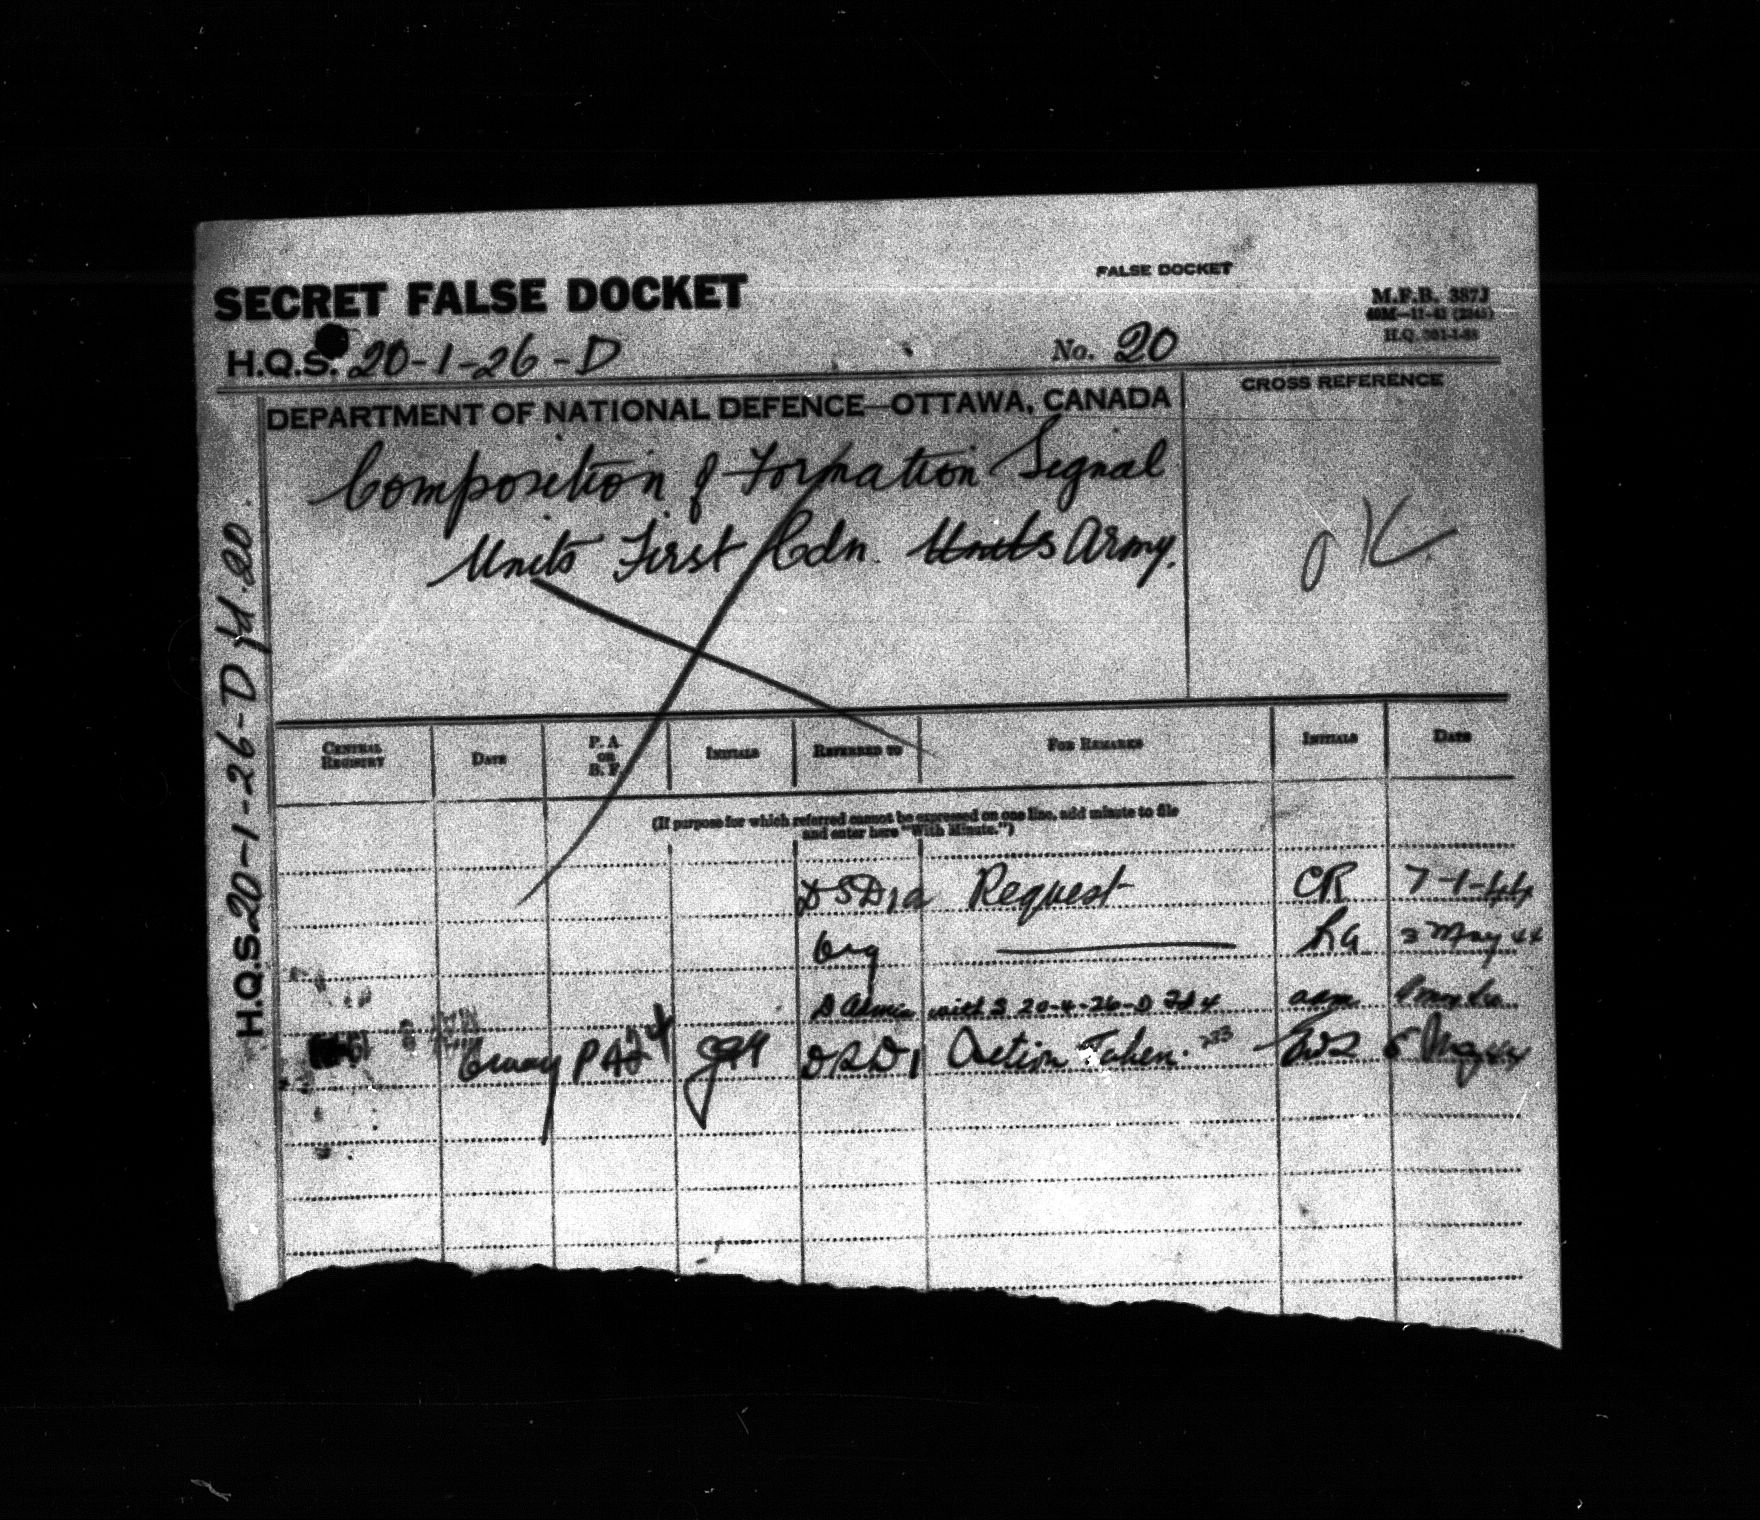 FALSE DOCKET
SECRET FALSE DOCKET
M.F.B. 387J
40M—11-41 (2345)
H.Q.S. 20-1-26-D
No. 20
DEPARTMENT OF NATIONAL DEFENCE—OTTAWA, CANADA
CROSS REFERENCE
Composition of Formation Signal
Units First Cdn. Units Army.
OK
H.Q.S. 20-1-26-D fd. 20
CENTRAL REGISTRY
DATE
P. A. OR B. F.
INITIALS
REFERRED TO
FOR REMARKS
INITIALS
DATE
(If purpose for which referred cannot be expressed on one line, add minute to file
and enter here "With Minute.")
DSD1a Request CR 7-1-44
Org 2 May 44
D Admin with S 20-4-26-D Fd 4
6 May PA Action Taken. 6 May 44